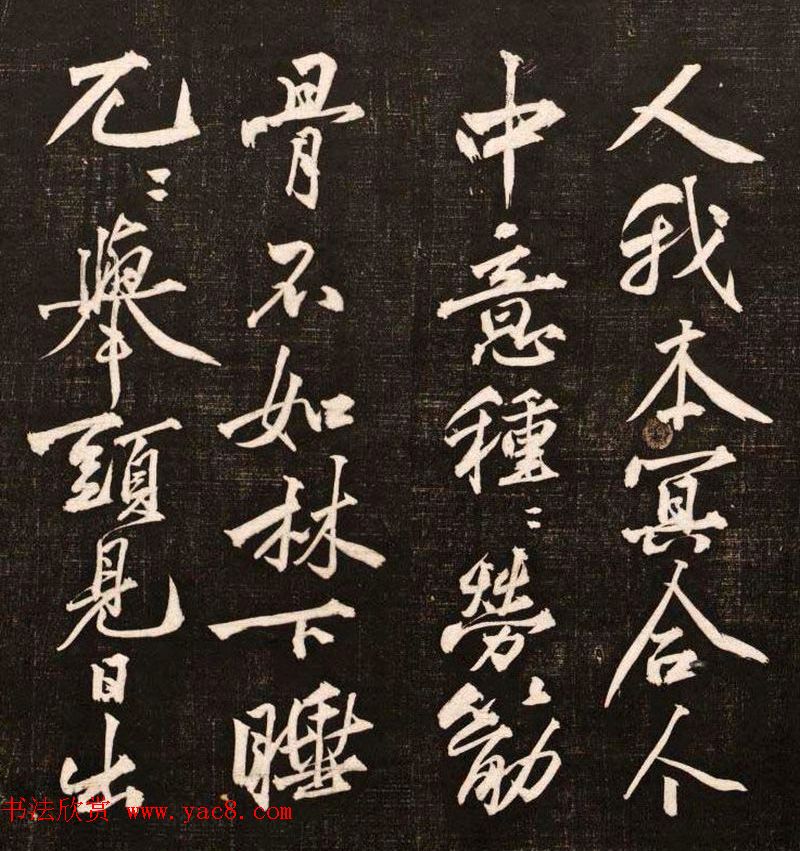 人我本冥合个
中意種〻勞筋
骨不如林下睡
兀〻舉頭見日出
书法欣赏 www.yac8.com